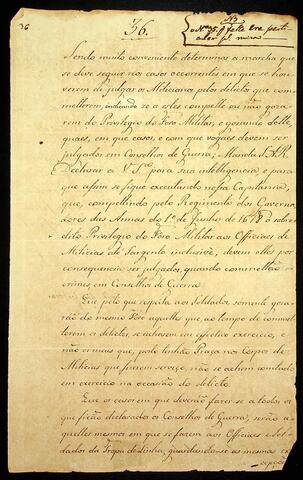 36
36.
NB
o Nº 35. falta
Sendo muito conveniente determinar a marcha que
se deve seguir nos casos occorrentes em que se houverem
de julgar os Milicianos pelos delictos que com-
metterem, indicando se a estes compette ou não gozarem
do Privilegio do Foro Militar, e gozando delle
quaes, em que casos, e com que vogaes devem ser
julgados em Conselhos de Guerra; Manda S. A. R.
Declarar a V. S.ª para sua intelligencia, e para
que assim se fique executando nessa Capitania,
que, compettindo pelo Regimento dos Governa-
dores das Armas do 1º de Junho de 1678 o sobre
dito Privilegio do Foro Militar aos Officiaes de
Milicias até Sargento inclusive, devem elles por
consequencia ser julgados, quando commettão
crimes, em Conselhos de Guerra.
Que pelo que respeita aos Soldados, somente goza-
rão do mesmo Foro aquelles que ao tempo de commet-
terem o delicto, se acharem em effectivo exercicio, e
não os mais que, posto tenhão Praça nos Corpos de
Milicias que fizerem serviço, não se achem comtudo
em exercicio na occasião do delicto.
Que os casos em que deverão fazer-se a todos os
que ficão declarados os Conselhos de Guerra, serão a-
quelles mesmos em que se fazem aos Officiaes e Sol-
dados da Tropa de Linha, guardando-se as mesmas ex-